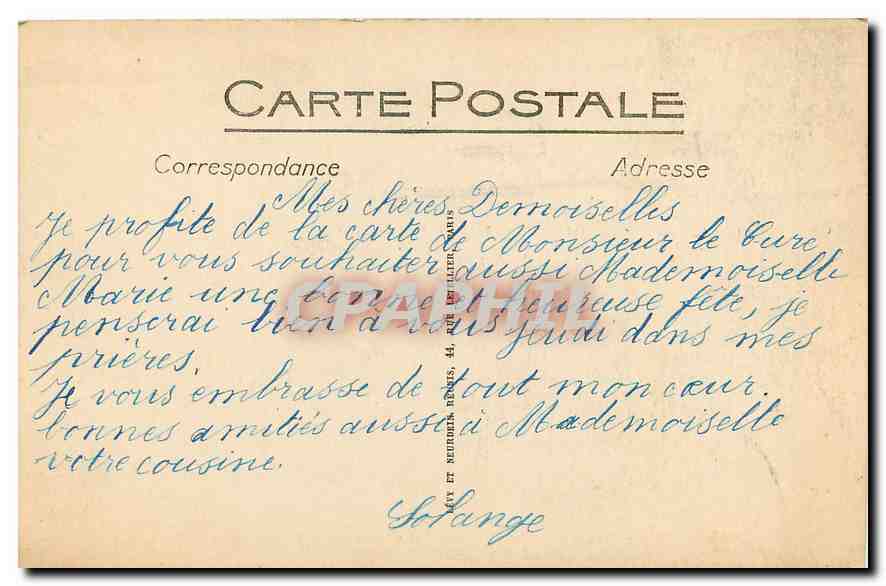 CARTE POSTALE
Correspondance
Adresse
Mes chères Demoiselles
Je profite de la carte de Monsieur le Curé
pour vous souhaiter aussi Mademoiselle
Marie une bonne et heureuse fête, je
penserai bien à vous jeudi dans mes
prières.
Je vous embrasse de tout mon cœur.
bonnes amitiés aussi à Mademoiselle
votre cousine.
Solange
LÉVY ET NEURDEIN RÉUNIS, 44, RUE LETELLIER, PARIS
CPAPHIL